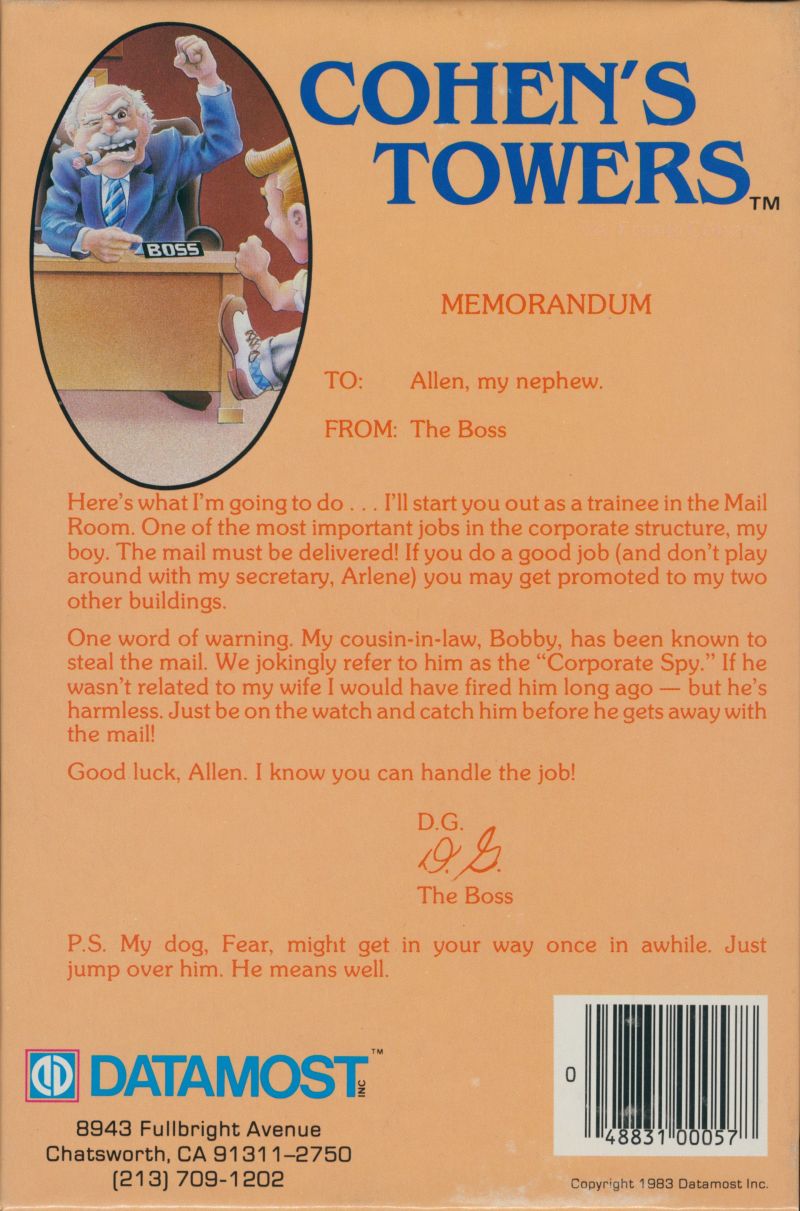 COHEN'S
TOWERS™
BOSS
MEMORANDUM
TO: Allen, my nephew.
FROM: The Boss
Here's what I'm going to do . . . I'll start you out as a trainee in the Mail
Room. One of the most important jobs in the corporate structure, my
boy. The mail must be delivered! If you do a good job (and don't play
around with my secretary, Arlene) you may get promoted to my two
other buildings.
One word of warning. My cousin-in-law, Bobby, has been known to
steal the mail. We jokingly refer to him as the “Corporate Spy.” If he
wasn't related to my wife I would have fired him long ago — but he's
harmless. Just be on the watch and catch him before he gets away with
the mail!
Good luck, Allen. I know you can handle the job!
D.G.
D. G.
The Boss
P.S. My dog, Fear, might get in your way once in awhile. Just
jump over him. He means well.
DATAMOST INC ™
8943 Fullbright Avenue
Chatsworth, CA 91311–2750
(213) 709-1202
0 48831 00057
Copyright 1983 Datamost Inc.